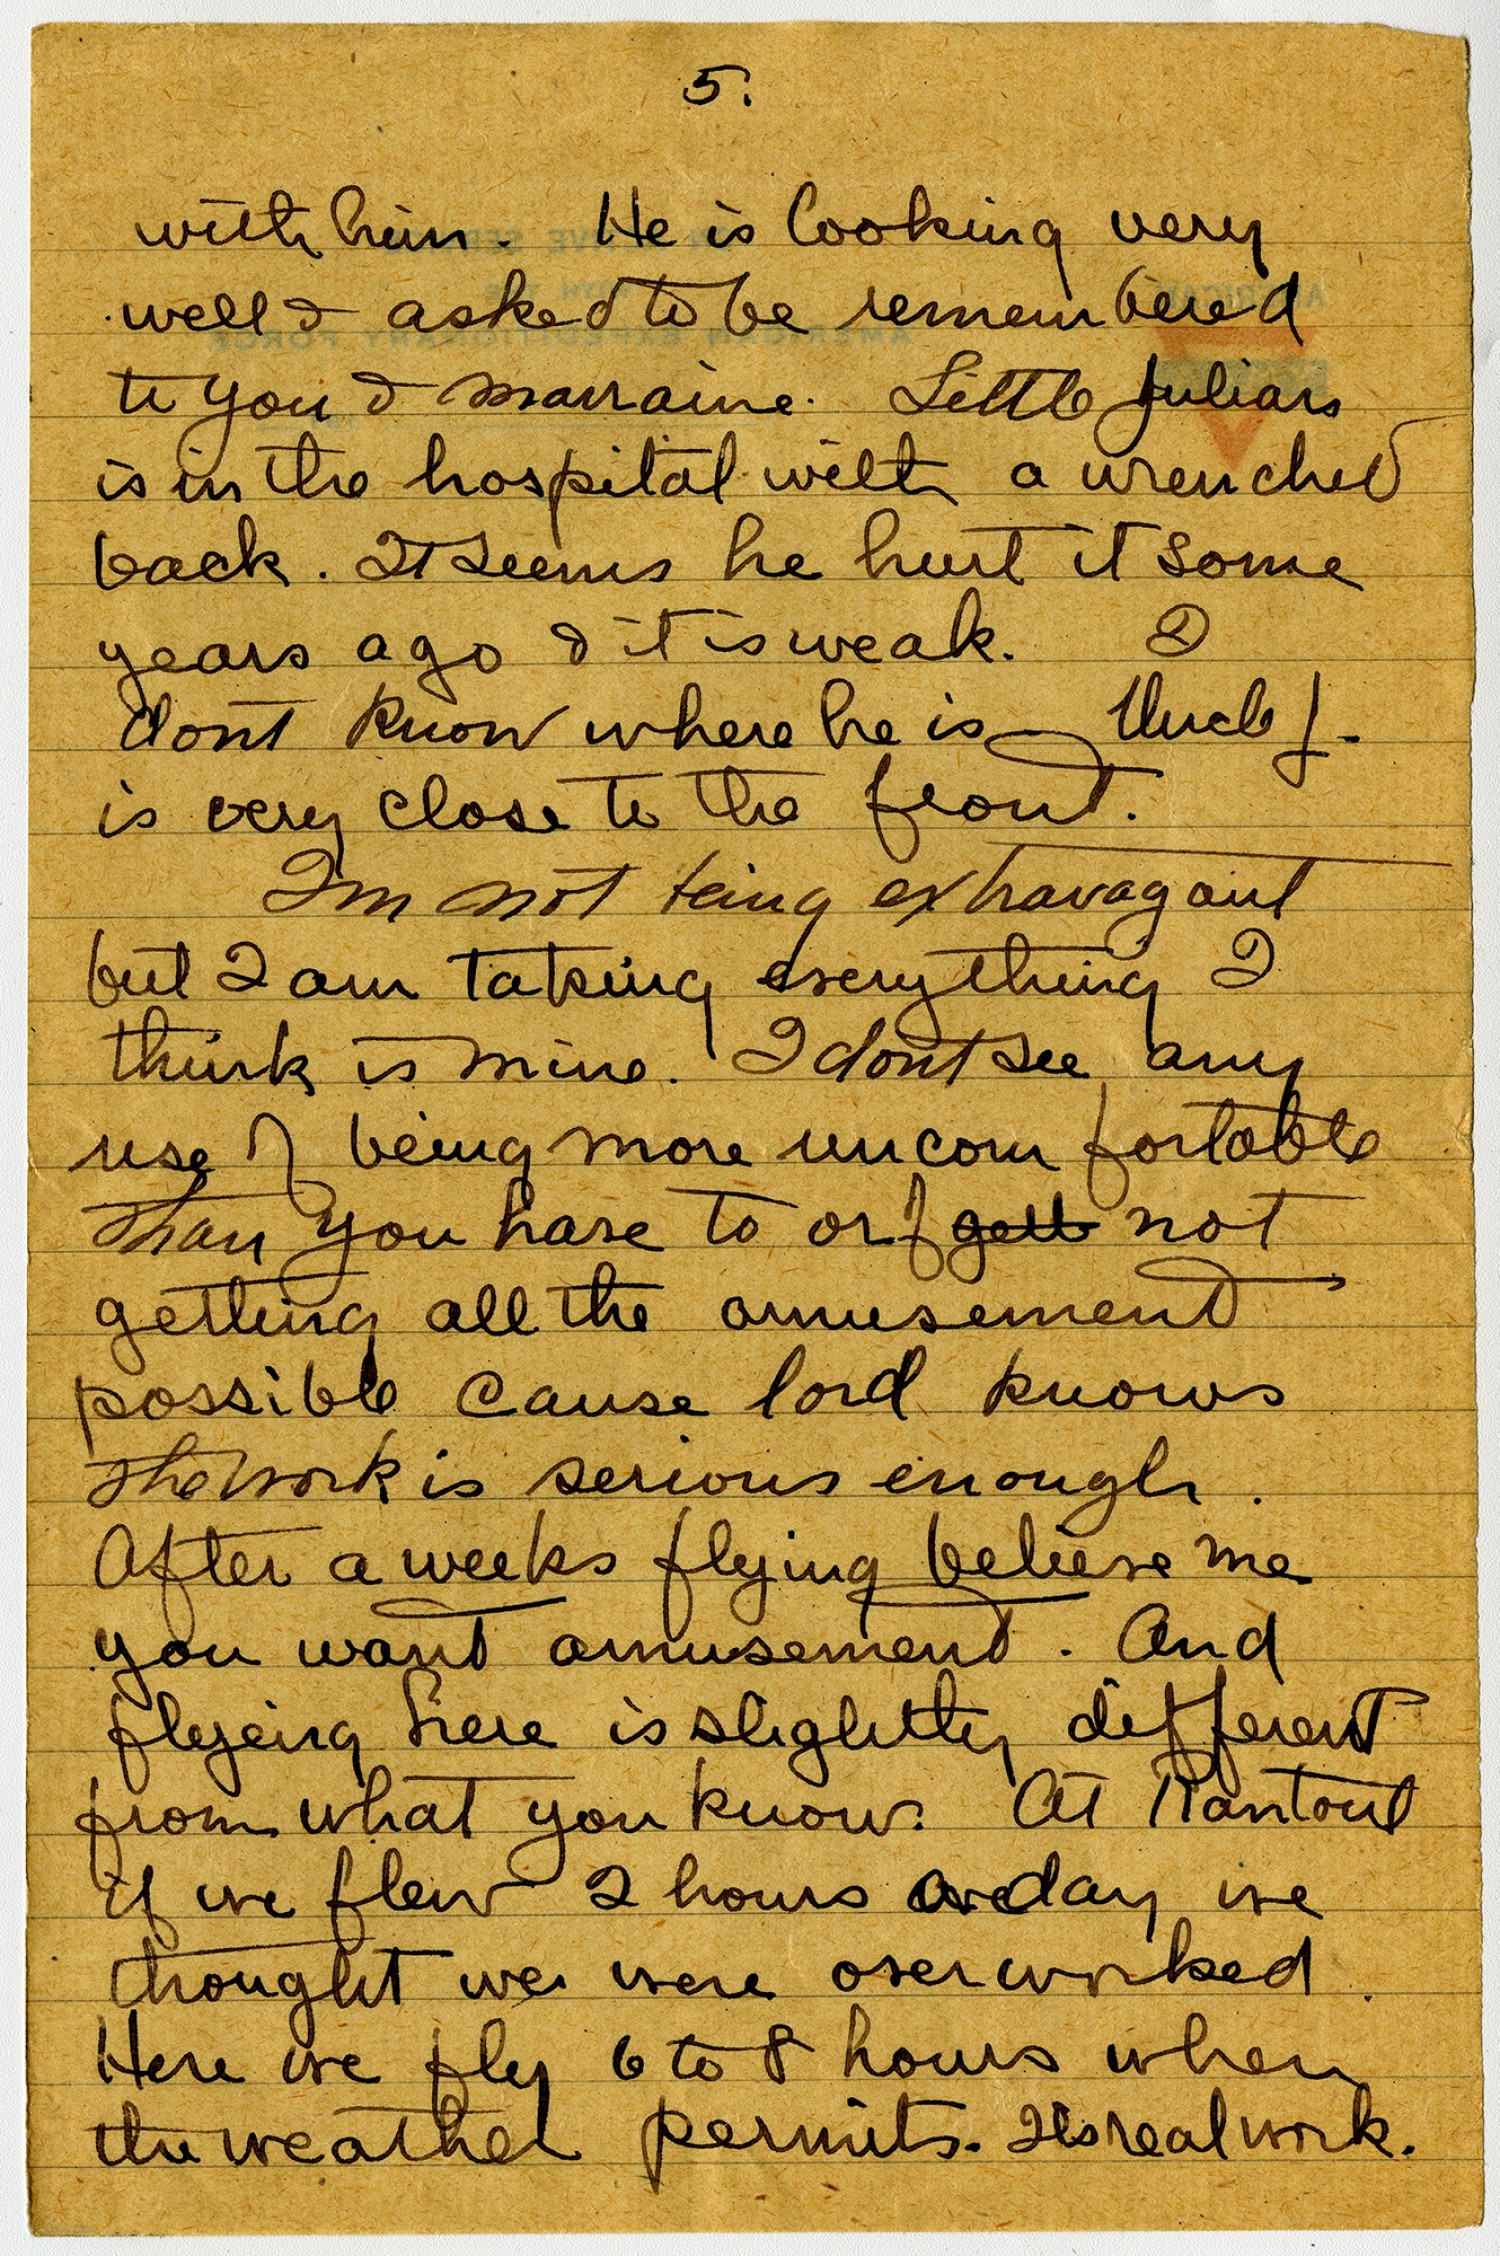 5.
with him. He is looking very
well & asked to be remembered
to you & marraine. Little Julian
is in the hospital with a wrenched
back. It seems he hurt it some
years ago & it is weak. I
dont know where he is — Uncle J.
is very close to the front.
I'm not being extravagant
but I am taking everything I
think is mine. I dont see any
use of being more uncomfortable
than you have to or of gett not
getting all the amusement
possible cause lord knows
the work is serious enough.
After a weeks flying believe me
you want amusement. And
flyeing here is slightly different
from what you know. At Rantoul
if we flew 2 hours a day we
thought we were overworked.
Here we fly 6 to 8 hours when
the weather permits. Its real work.
AMERICAN EXPEDITIONARY FORCE